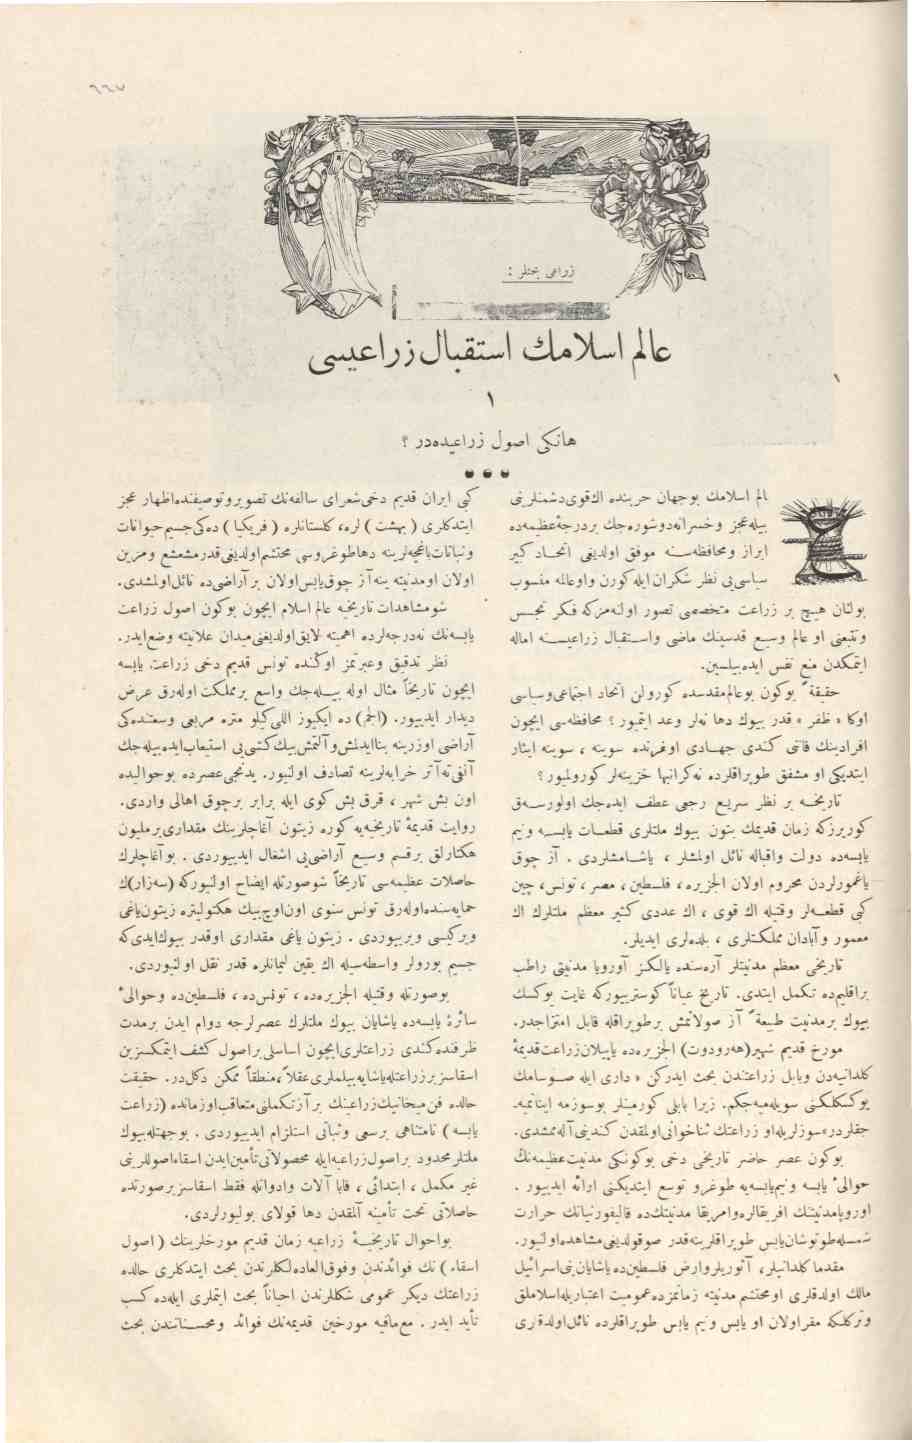 ٦٦٧
زراعی بحثلر :
عالم اسلامك استقبال زراعیسی
١
هانكی اصول زراعیده‌در ؟
الم اسلامك بوجهان حربنده اك‌قوی‌دشمنلرینی
بیله‌عجز وخسرانه‌دوشوره‌جك بردرجهٔ‌عظیمه‌ده
ابراز ومحافظه‌سنه موفق اولدیغی اتحاد كبیر
سیاسی‌یی نظر شكران ایله كورن واوعالمه منسوب
بولنان هیچ بر زراعت متخصصی تصور اولنه‌مزكه فكر تجسس
وتتبعنی او عالم وسیع قدسینك ماضی واستقبال زراعیسنه اماله
ایتمكدن منع نفس ایده‌بیلسین.
حقیقةً بوكون بوعالم‌مقدسده كورولن اتحاد اجتماعی‌وسیاسی
اوكا « ظفر » قدر بیوك دها نه‌لر وعد ایتمیور ؟ محافظه‌سی ایچون
افرادینك قانی كندی جهادی اوغرنده سوینه ، سوینه ایثار
ایتدیكی او مشفق طوپراقلرده نه‌كرانبها خزینه‌لر كورولمیور؟
تاریخه بر نظر سریع رجعی عطف ایده‌جك اولورسه‌ق
كوریرزكه زمان قدیمك بتون بیوك ملتلری قطعات یابسه ونیم
یابسه‌ده دولت واقباله نائل اولمشلر ، یاشامشلردی . آز چوق
یاغمورلردن محروم اولان الجزیره ، فلسطین ، مصر ، تونس، چین
كبی قطعه‌لر وقتیله اك قوی ، اك عددی كثیر معظم ملتلرك اك
معمور وآبادان مملكتلری ، بلده‌لری ایدیلر.
تاریخی معظم مدنیتلر آره‌سنده یالكز آوروپا مدنیتی راطب
براقلیم‌ده تكمل ایتدی. تاریخ عیاناً كوستریبوركه غایت یوكسك
بیوك برمدنیت طبیعةً آز صولانمش برطوپراقله قابل امتزاجدر.
مورخ قدیم شهیر(هه‌رودوت) الجزیره‌ده یاپیلان‌زراعت‌قدیمهٔ
كلدانیه‌دن وبابل زراعتندن بحث ایدركن « داری ایله صوصامك
یوكسكلكنی سویلمیه‌جكم. زیرا بابلی كورمینلر بوسوزمه اینانمیه-
جقلردر»سوزلریله‌او زراعتك ثناخوانی‌اولمقدن كندینی آله‌ممشدی.
بوكون عصر حاضر تاریخی دخی بوكونكی مدنیت‌عظیمه‌نك
حوالیٔ یابسه ونیم‌یابسه‌یه طوغرو توسع ایتدیكنی ارائه ایدییور .
اوروپامدنیتنك افریقالره‌وامریقا مدنیتك‌ده قالیفورنیانك حرارت
شمسله‌طوتوشان‌یابس طوپراقلرینه‌قدر صوقولدیغی‌مشاهده‌اولنیور.
مقدما كلدانیلر، آثوریلروارض فلسطین‌ده یاشایان‌بنی‌اسرائیل
مالك اولدقلری اومحتشم مدنیته زمانمزده‌عمومیت اعتباریله‌اسلاملق
وتركلكه مقراولان او یابس ونیم یابس طوپراقلرده نائل‌اولدقلری
كبی ایران قدیم دخی‌شعرای سالفه‌نك تصویروتوصیفنده‌اظهار عجز
ایتدكلری ( بهشت ) لره، كلستانلره ( فریكیا ) ده‌كی‌جسیم‌حیوانات
ونباتات‌باغچه‌لرینه دهاطوغروسی محتشم‌اولدیغی‌قدرمشعشع ومزین
اولان اومدنیته ینه‌آز چوق‌یابس‌اولان برآراضی‌ده نائل‌اولمشدی.
شومشاهدات تاریخیه عالم اسلام ایچون بوكون اصول زراعت
یابسه‌نك نه‌درجه‌لرده اهمیته لایق‌اولدیغنی‌میدان علانیته وضع‌ایدر.
نظر تدقیق وعبرتمز اوكنده تونس قدیم دخی زراعت یابسه
ایچون تاریخاً مثال اوله بیله‌جك واسع برمملكت اوله‌رق عرض
دیدار ایدییور. (الجم) ده ایكیوز اللی‌كیلو متره مربعی وسعتنده‌كی
آراضی اوزرینه بناایدلمش‌وآلتمش‌بیك‌كشی‌یی استیعاب‌ایده‌بیله‌جك
آنفی‌ته‌آتر خرابه‌لرینه تصادف اولنیور. یدنجی‌عصرده بوحوالیده
اون بش شهر ، قرق بش كوی ایله برابر برچوق اهالی واردی.
روایت قدیمهٔ تاریخیه‌یه كوره زیتون آغاجلرینك مقداری‌برملیون
هكتارلق برقسم وسیع آراضی‌یی اشغال ایدییوردی . بوآغاچلرك
حاصلات عظیمه‌سی تاریخاً شوصورتله ایضاح اولنیوركه (سه‌زار)ك
حمایه‌سنده‌اوله‌رق تونس سنوی اون‌اوچ‌بیك هكتولیتره زیتون‌یاغی
ویركیسی ویرییوردی . زیتون یاغی مقداری اوقدر بیوك‌ایدی‌كه
جسیم بورولر واسطه‌سیله اك یقین لیمانلره قدر نقل اولنیوردی.
بوصورتله وقتیله الجزیره‌ده ، تونس‌ده ، فلسطین‌ده وحوالیٔ
سائرهٔ یابسه‌ده یاشایان بیوك ملتلرك عصرلرجه دوام ایدن برمدت
ظرفنده‌كندی زراعتلری‌ایچون اساسلی براصول كشف ایتمكسزین
اسقاسزبرزراعتله‌یاشایه‌بیلملری‌عقلاً،منطقاً ممكن دكل‌در. حقیقت
حالده فن‌میخانیك‌زراعینك برآزتكملنی‌متعاقب‌اوزمانده (زراعت
یابسه ) نامتناهی برسعی وثباتی استلزام ایدییوردی . بوجهتله‌بیوك
ملتلرمحدود براصول‌زراعیه‌ایله محصولاتی‌تأمین‌ایدن اسقاءاصوللرینی
غیر مكمل ، ابتدائی ، قابا آلات وادواتله فقط اسقاسزبرصورتده
حاصلاتی تحت تأمینه آلمقدن دها قولای بولیورلردی.
بواحوال تاریخیهٔ زراعیه زمان قدیم مورخلرینك ( اصول
اسقاء ) نك فوائدندن وفوق‌العاده‌لكلرندن بحث ایتدكلری حالده
زراعتك دیكر عمومی شكللرندن احیاناً بحث ایتملری ایله‌ده كسب
تأید ایدر . مع‌مافیه مورخین قدیمه‌نك فوائد ومحسناتندن بحث